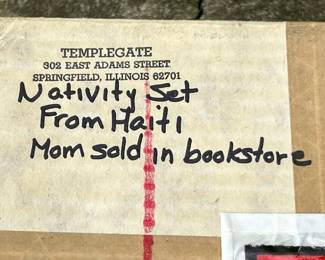 TEMPLEGATE
302 EAST ADAMS STREET
SPRINGFIELD, ILLINOIS 62701
Nativity Set
From Haiti
Mom sold in bookstore